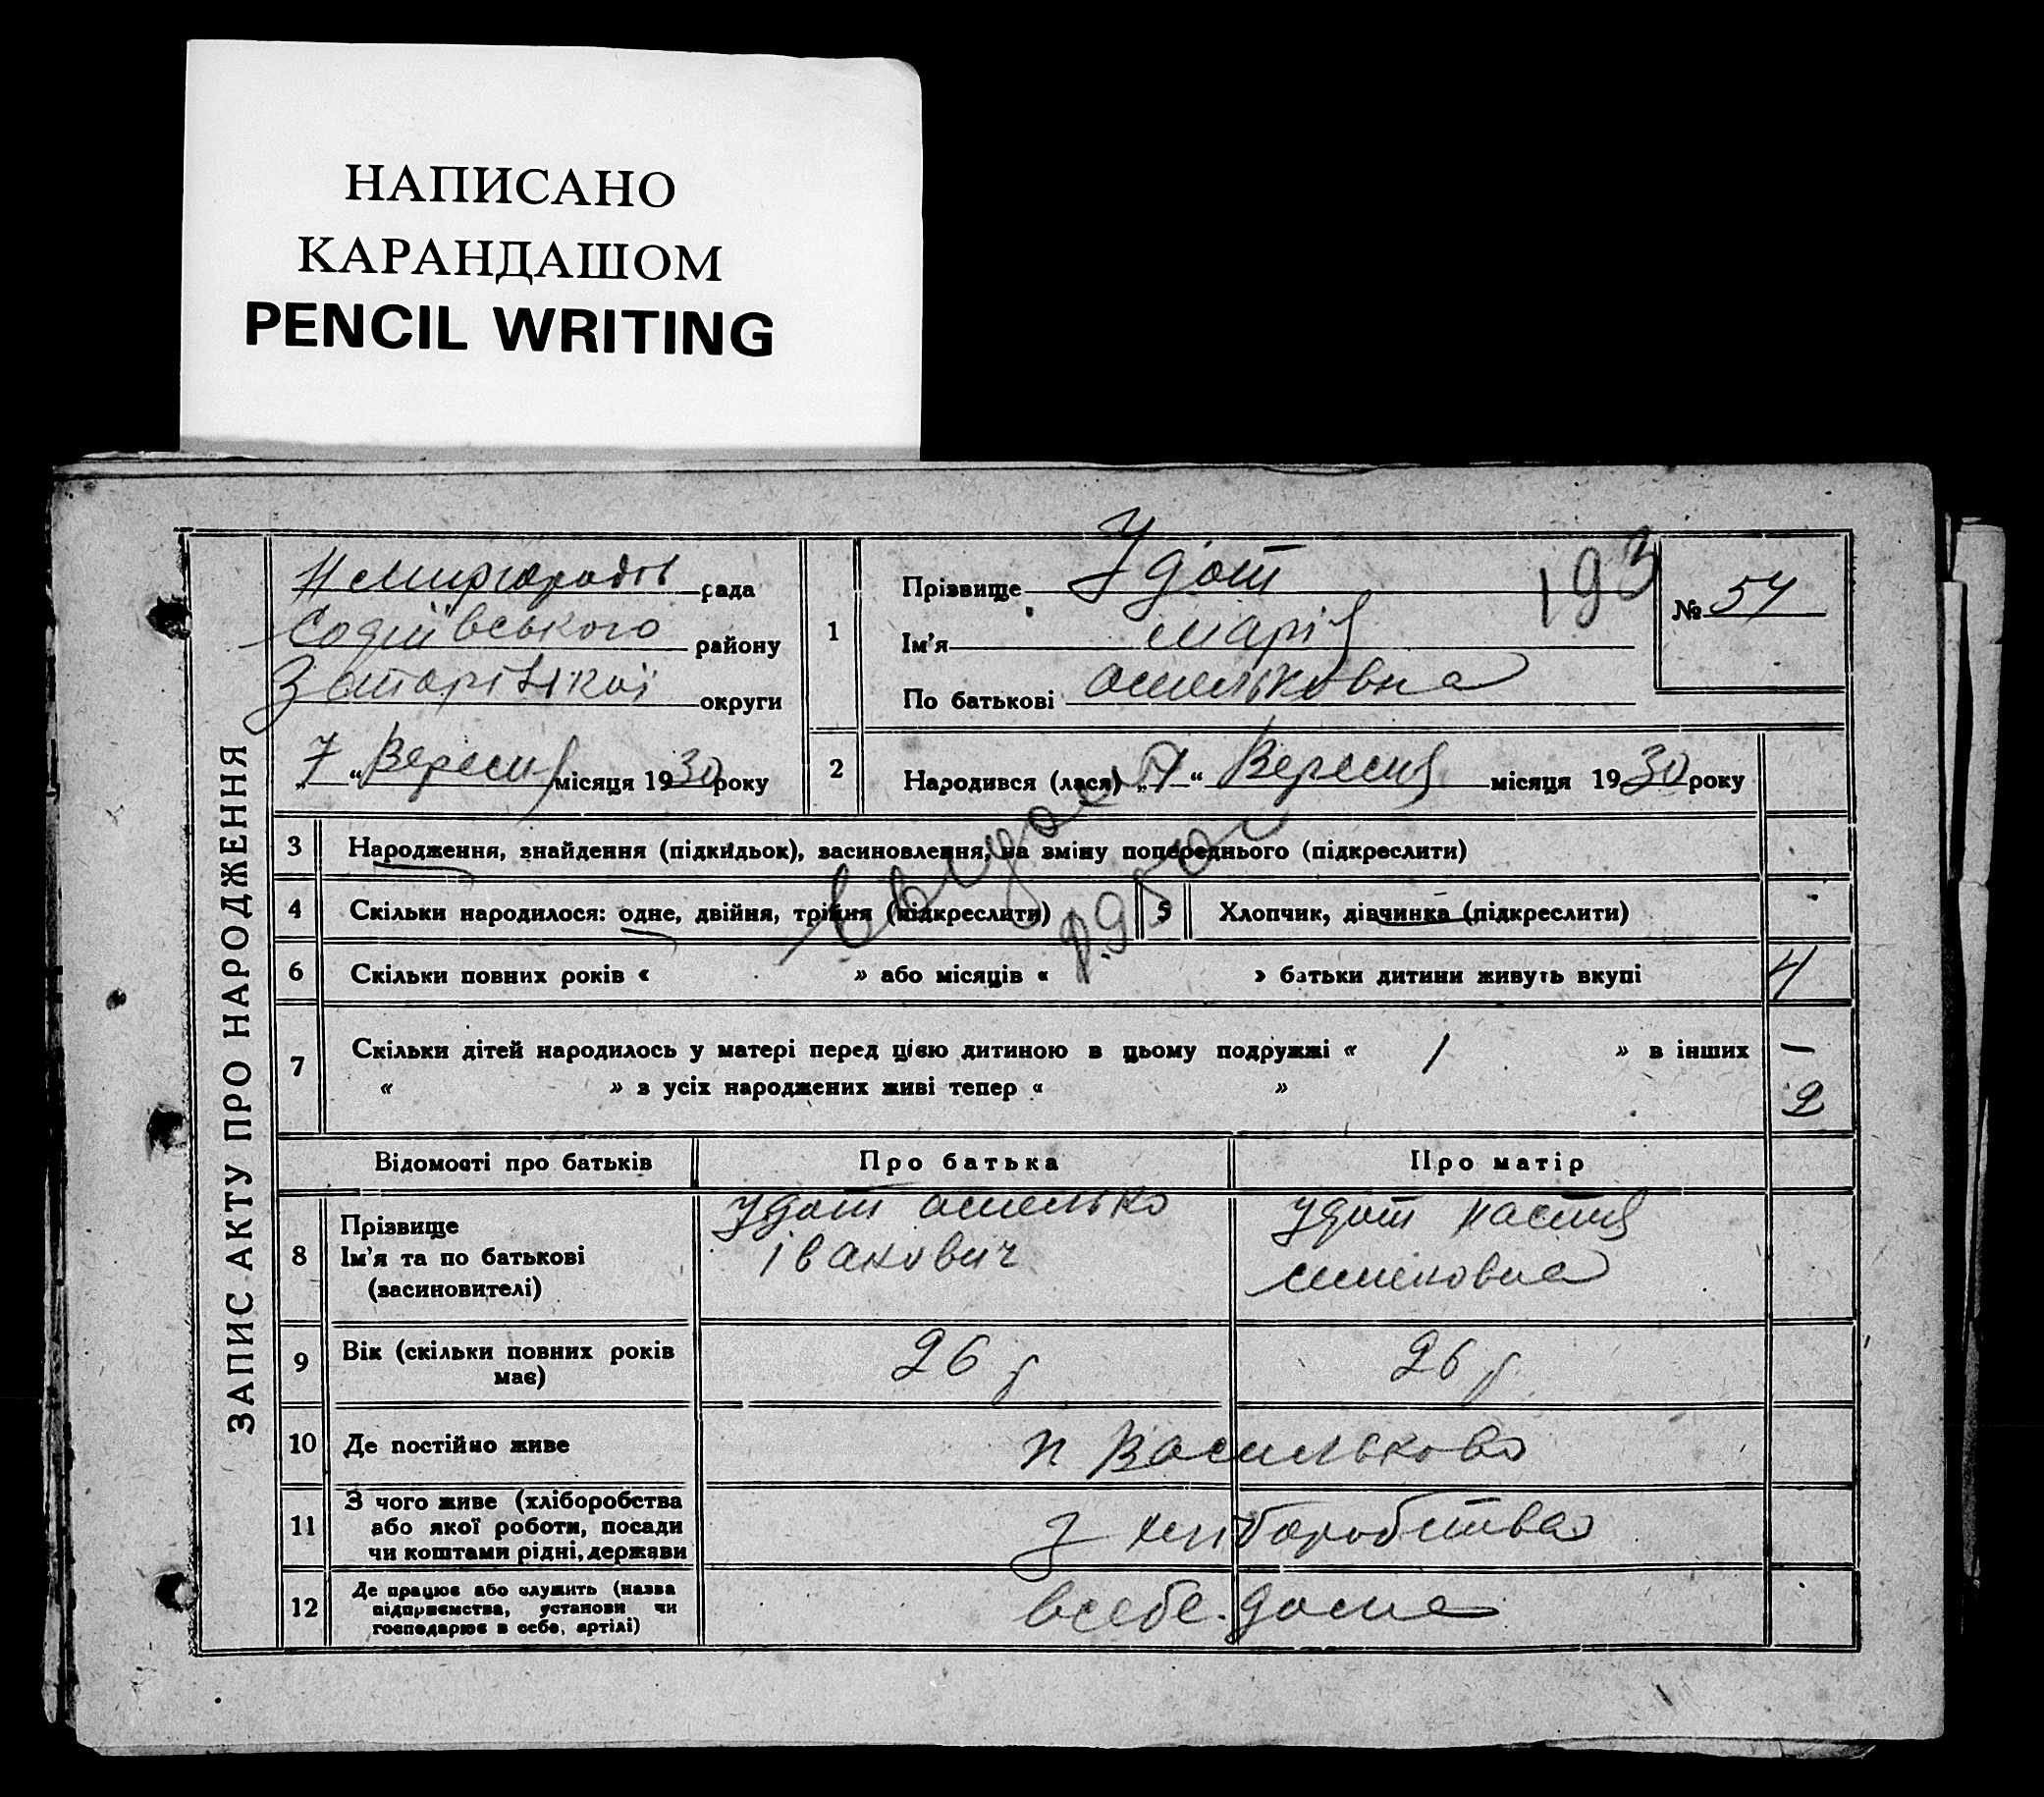 НАПИСАНО
КАРАНДАШОМ
PENCIL WRITING
ЗАПИС АКТУ ПРО НАРОДЖЕННЯ
рада
Софіївського району
округи
„7“ Вересня місяця 1930 року
1 Прізвище Удот
Ім'я Марія
По батькові Омельковна
193
№ 57
2 Народився (лася) „7“ Вересня місяця 1930 року
3 Народження, знайдення (підкидьок), засиновлення, на зміну попереднього (підкреслити)
4 Скільки народилося: одне, двійня, трійня (підкреслити) 5 Хлопчик, дівчинка (підкреслити)
6 Скільки повних років « » або місяців « » батьки дитини живуть вкупі 4
7 Скільки дітей народилось у матері перед цією дитиною в цьому подружжі « 1 » в інших 1
« » з усіх народжених живі тепер « » 2
Відомості про батьків Про батька Про матір
8 Прізвище
Ім'я та по батькові
(засиновителі)
Удот Омелько
Іванович
Удот Настя
9 Вік (скільки повних років
має)
26 р
26 р
10 Де постійно живе
п Васильково
11 З чого живе (хліборобства
або якої роботи, посади
чи коштами рідні, держави
з хліборобства
12 Де працює або служить (назва
підприємства, установи чи
господарює в себе, артілі)
всебе дома